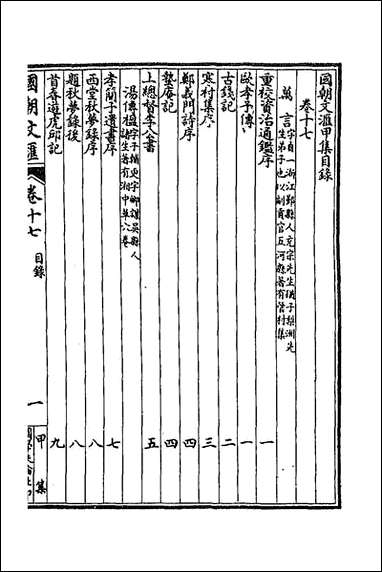 國朝文滙甲集目錄
卷十七
萬言 字貞一浙江鄞縣人充宗先生猶子梨洲先生弟子也以副貢官五河縣著有管村集
重校資治通鑑序 一
歐孝子傳 一
古錢記 二
寒村集序 三
鄭義門詩序 四
墊庵記 四
上總督李公書 五
湯傳楹 字子輔更字卿謀吳縣人諸生著有湘中草六卷
李簡子遺書序 七
西堂秋夢錄序 八
題秋夢錄後 八
首春遊虎邱記 九
國朝文匯
卷十七 目錄
一
甲集